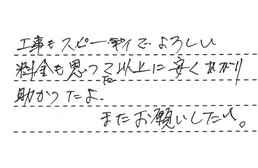 工事もスピーディで よろしい
料金も思ってた以上に安くあがり
助かったよ。
またお願いしたい。